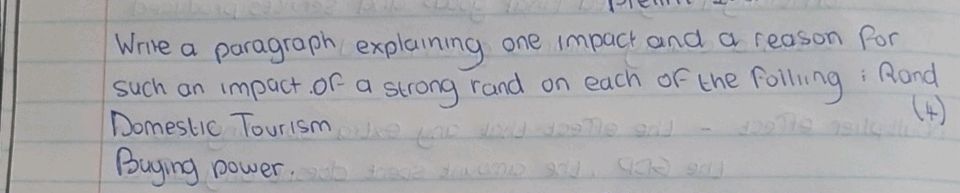 Write a paragraph explaining one impact and a reason for
such an impact of a strong rand on each of the folliing : Rand
(4)
Domestic Tourism
Buying power.